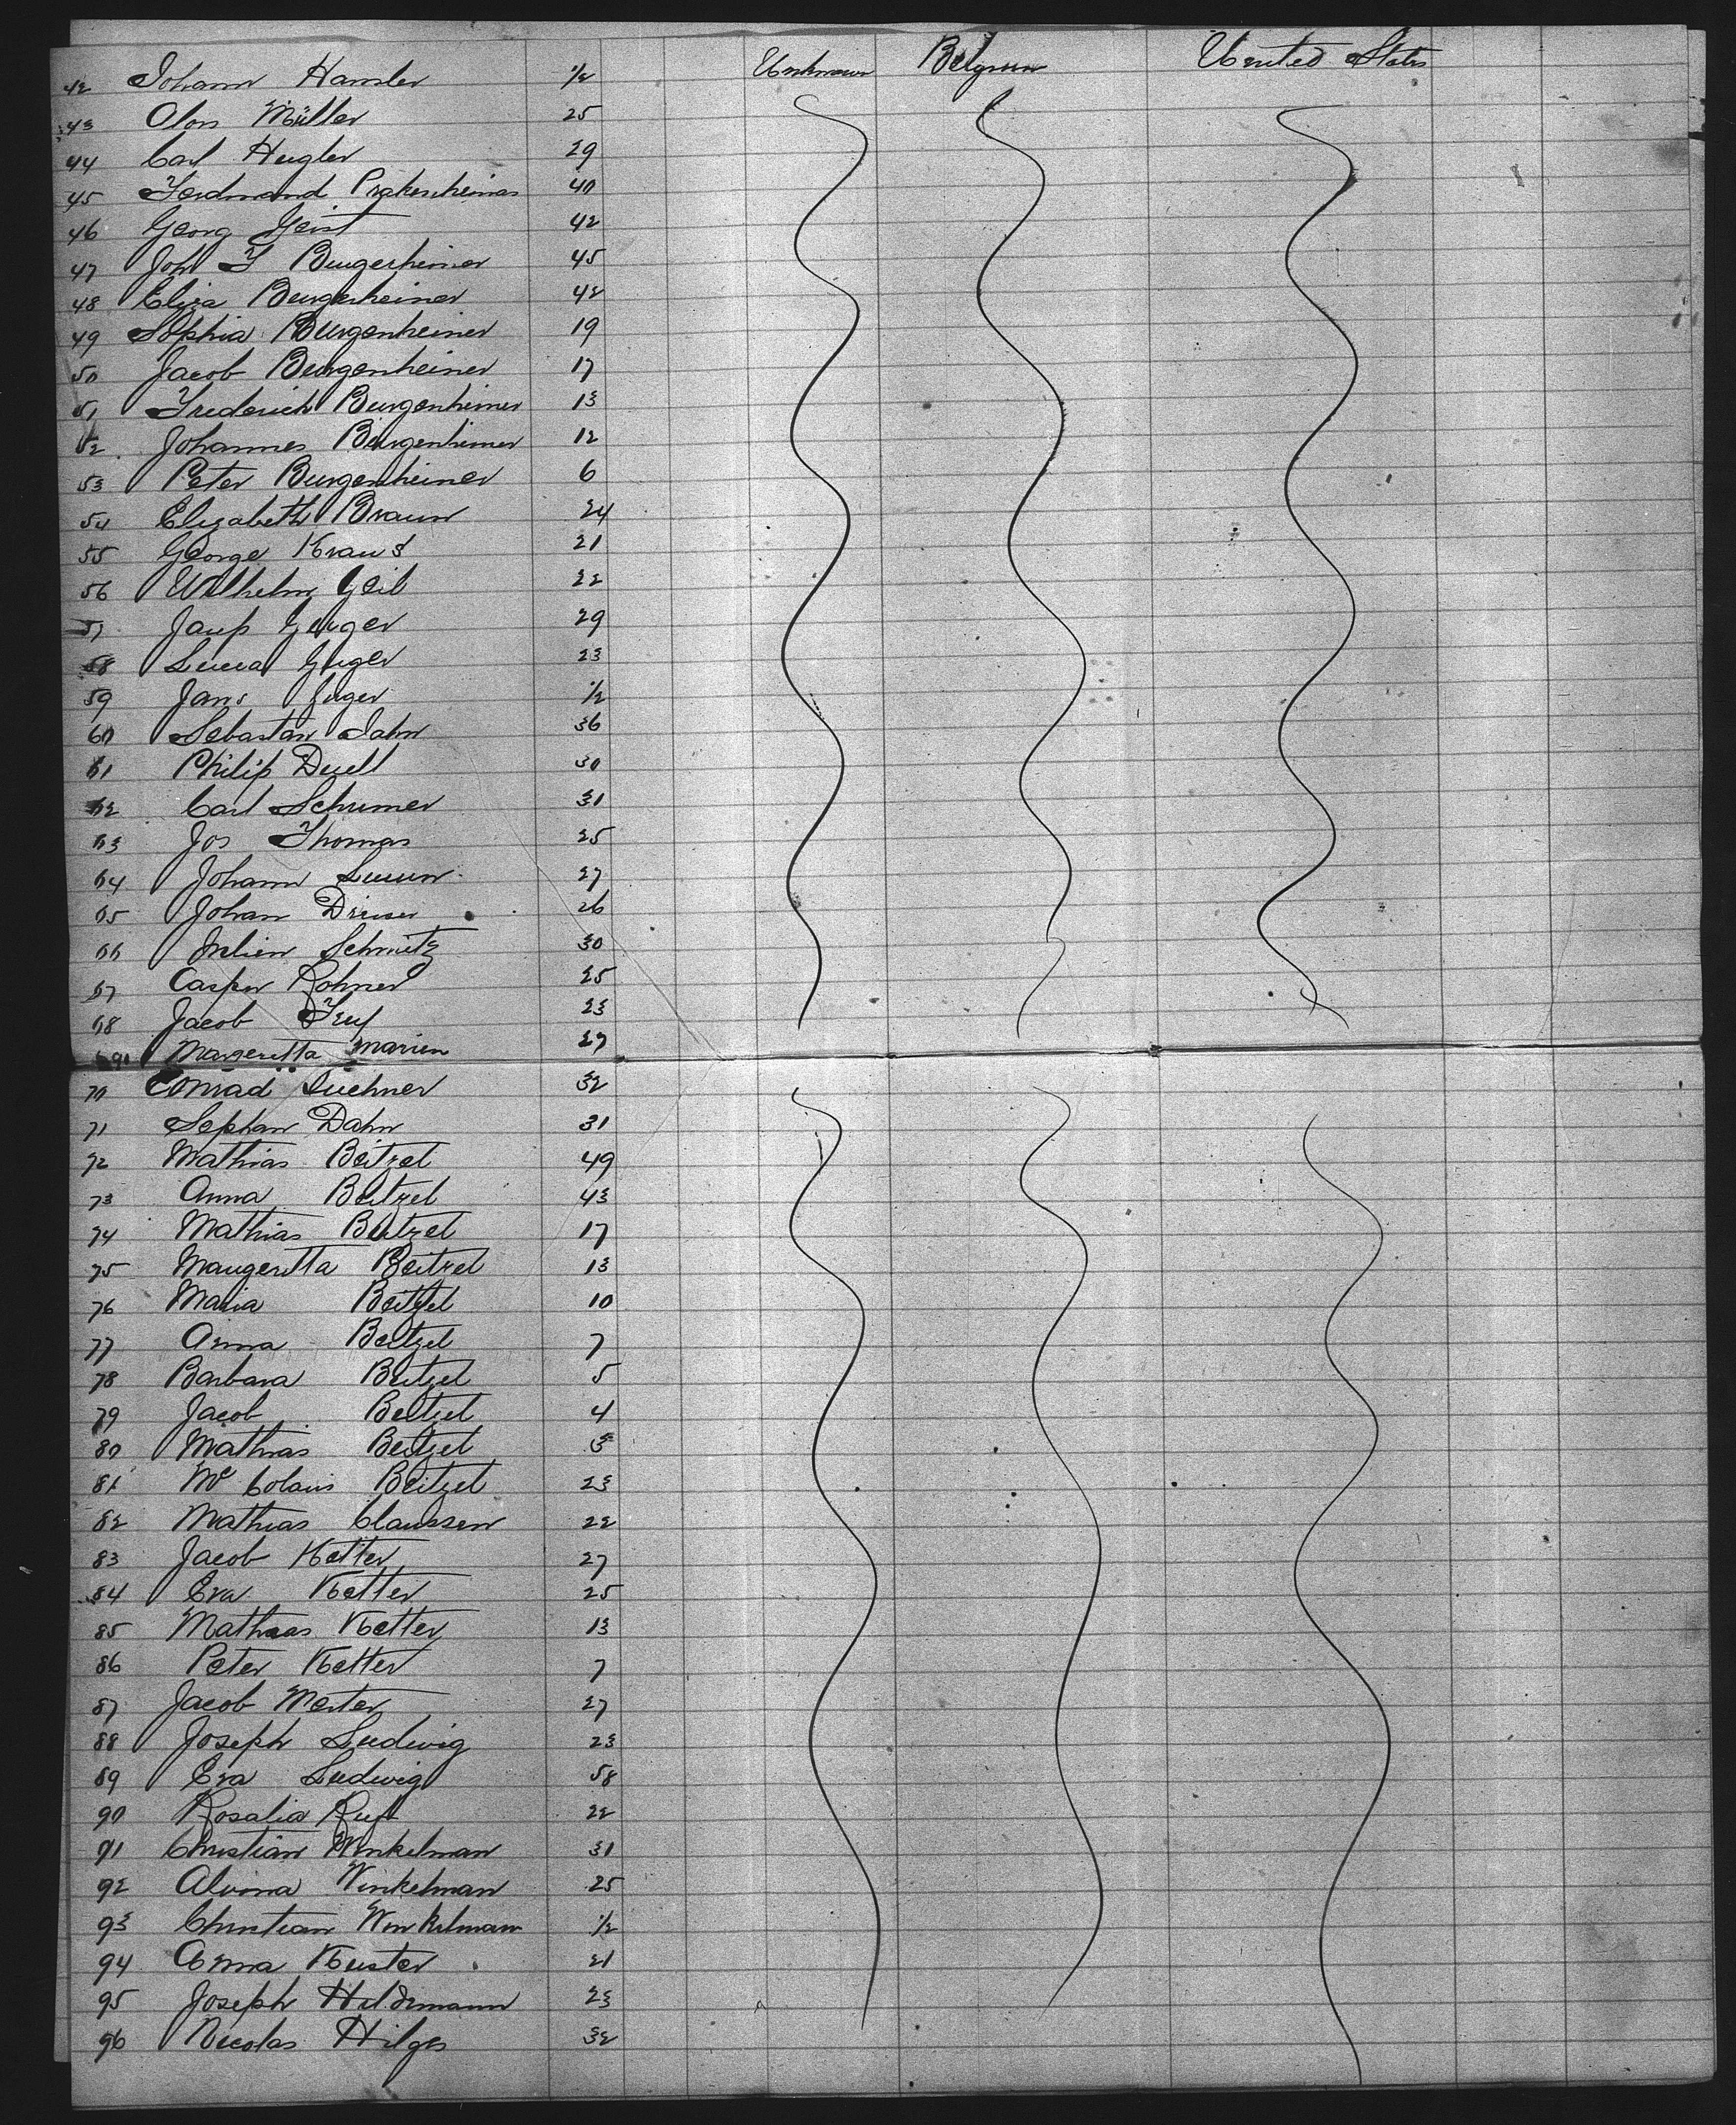 42 Johann Hamler 1/2 Unknown Belgium United States
43 Olors Müller 25
44 Carl Hugler 29
45 Ferdinand 40
46 Georg Geist 42
47 Joh F Burgenheimer 45
48 Elisa Burgenheimer 42
49 Sophia Burgenheimer 19
50 Jacob Burgenheimer 17
51 Frederich Burgenheimer 13
52 Johannes Burgenheimer 12
53 Peter Burgenheimer 6
54 Elizabeth Braun 24
55 George Kraus 21
56 Wilhelm Geil 22
57 Geiger 29
58 Geiger 23
59 Jans Geiger 1/2
60 Sebastian Jahn 36
61 Philip Duell 30
62 Carl Schirmer 31
63 Jos Thomas 25
64 Johann 27
65 Johan 26
66 Julien Schmitz 30
67 Casper Rohner 25
68 Jacob 23
69 Margeretta Marien 27
70 Conrad Luchner 32
71 Sephan Dahn 31
72 Mathias Beitzel 49
73 Anna Beitzel 43
74 Mathias Beitzel 17
75 Maugeretta Beitzel 13
76 Maria Beitzel 10
77 Anna Beitzel 7
78 Barbara Beitzel 5
79 Jacob Beitzel 4
80 Mathias Beitzel 3
81 Mc Colaus Beitzel 23
82 Mathias Claussen 22
83 Jacob Ketter 27
84 Eva Ketter 25
85 Mathias Ketter 13
86 Peter Ketter 7
87 Jacob Mester 27
88 Joseph Ludwig 23
89 Eva Ludwig 58
90 Rosalia Ruft 22
91 Christian Winkelman 31
92 Alvina Winkelman 25
93 Christian Winkelman 1/2
94 Anna Kuster 21
95 Joseph Hildemann 23
96 Necolas Hilges 32